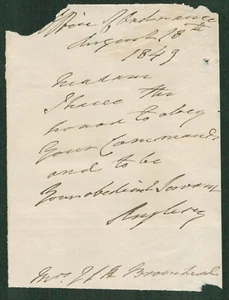 Office of Ordnance
August 18th
1849
Madam
I have the
honor to obey
Your Commands
and to be
Your obedient Servant
Anglesey
Mrs.